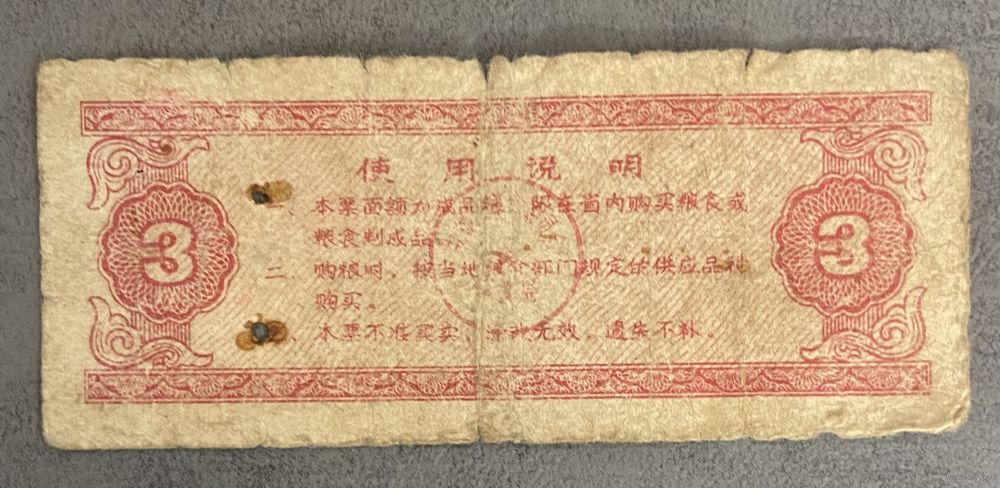 使用说明
3 3
、本票面额为成品粮，限在省内购买粮食或
粮食制成品
二、购粮时，按当地 部门规定的供应品种
购买。
、本票不准买卖， 无效、遗失不补。